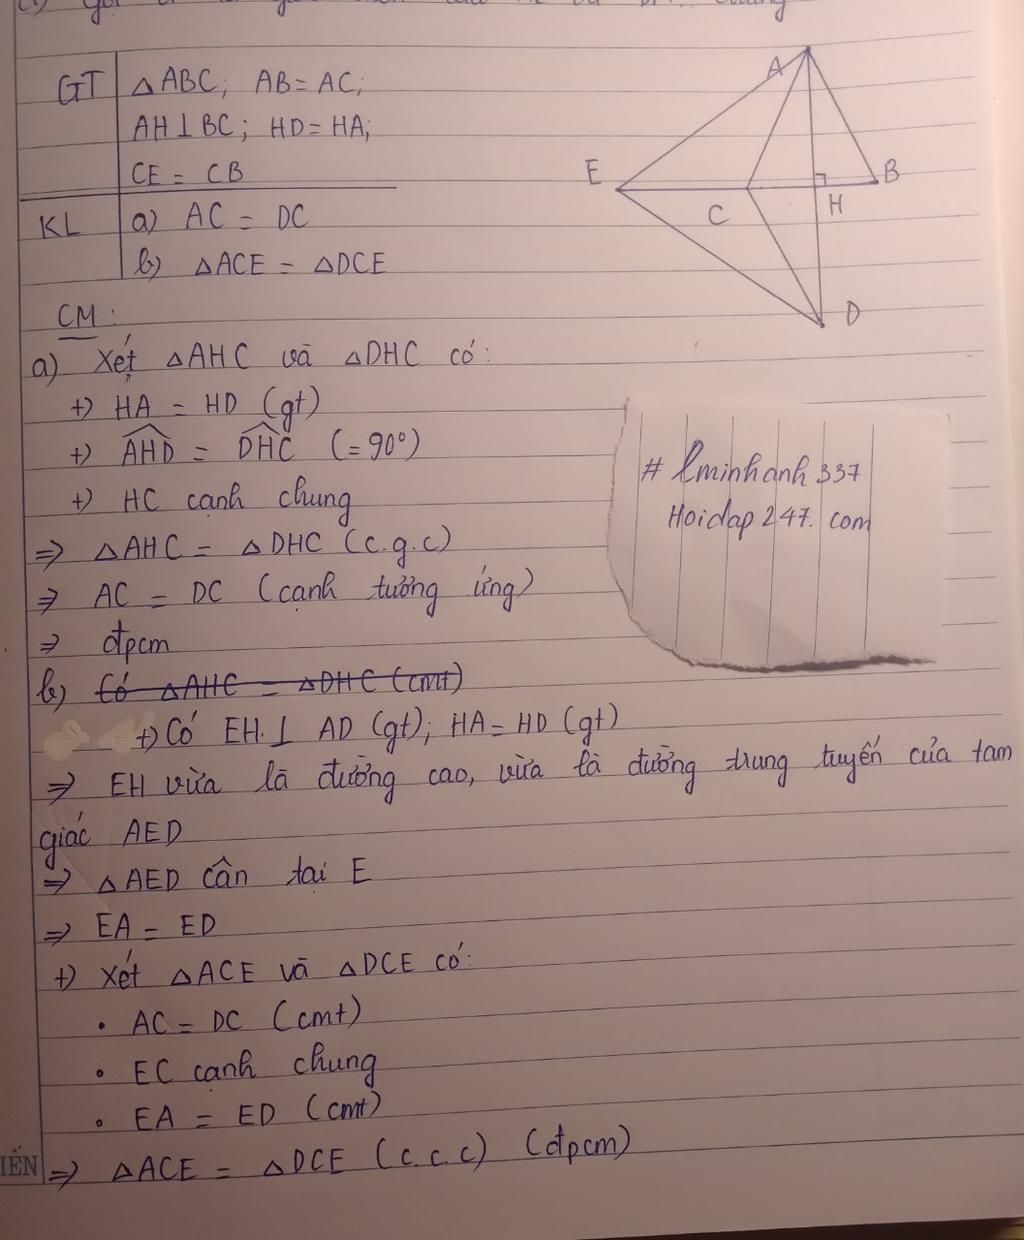 GT △ABC; AB = AC;
AH ⊥ BC; HD = HA;
CE = CB
KL a) AC = DC
b) △ACE = △DCE
A
E
B
C
H
D
CM:
a) Xét △AHC và △DHC có:
+) HA = HD (gt)
+) AHD = DHC (= 90°)
+) HC cạnh chung
⇒ △AHC = △DHC (c.g.c)
⇒ AC = DC (cạnh tương ứng)
⇒ đpcm
# lminhanh 337
Hoidap 247. com
b) Có △AHC = △DHC (cmt)
+) Có EH ⊥ AD (gt); HA = HD (gt)
⇒ EH vừa là đường cao, vừa là đường trung tuyến của tam
giác AED
⇒ △AED cân tại E
⇒ EA = ED
+) Xét △ACE và △DCE có:
• AC = DC (cmt)
• EC cạnh chung
• EA = ED (cmt)
IẾN ⇒ △ACE = △DCE (c.c.c) (đpcm)